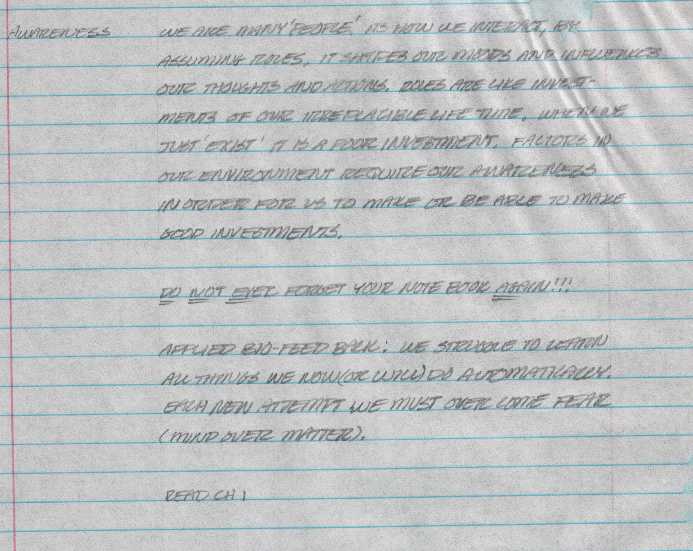 AWARENESS WE ARE MANY 'PEOPLE'. ITS HOW WE INTERACT, BY
ASSUMING ROLES, IT SHAPES OUR MOODS AND INFLUENCES
OUR THOUGHTS AND ACTIONS. ROLES ARE LIKE INVEST-
MENTS OF OUR IRREPLACIBLE LIFE TIME. WHEN WE
JUST 'EXIST' IT IS A POOR INVESTMENT. FACTORS IN
OUR ENVIRONMENT REQUIRE OUR AWARENESS
IN ORDER FOR US TO MAKE OR BE ABLE TO MAKE
GOOD INVESTMENTS.
DO NOT EVER FORGET YOUR NOTE BOOK AGAIN!!!
APPLIED BIO-FEED BACK: WE STRUGGLE TO LEARN
ALL THINGS WE NOW (OR WILL) DO AUTOMATICALLY.
EACH NEW ATTEMPT WE MUST OVER COME FEAR
(MIND OVER MATTER).
READ CH 1